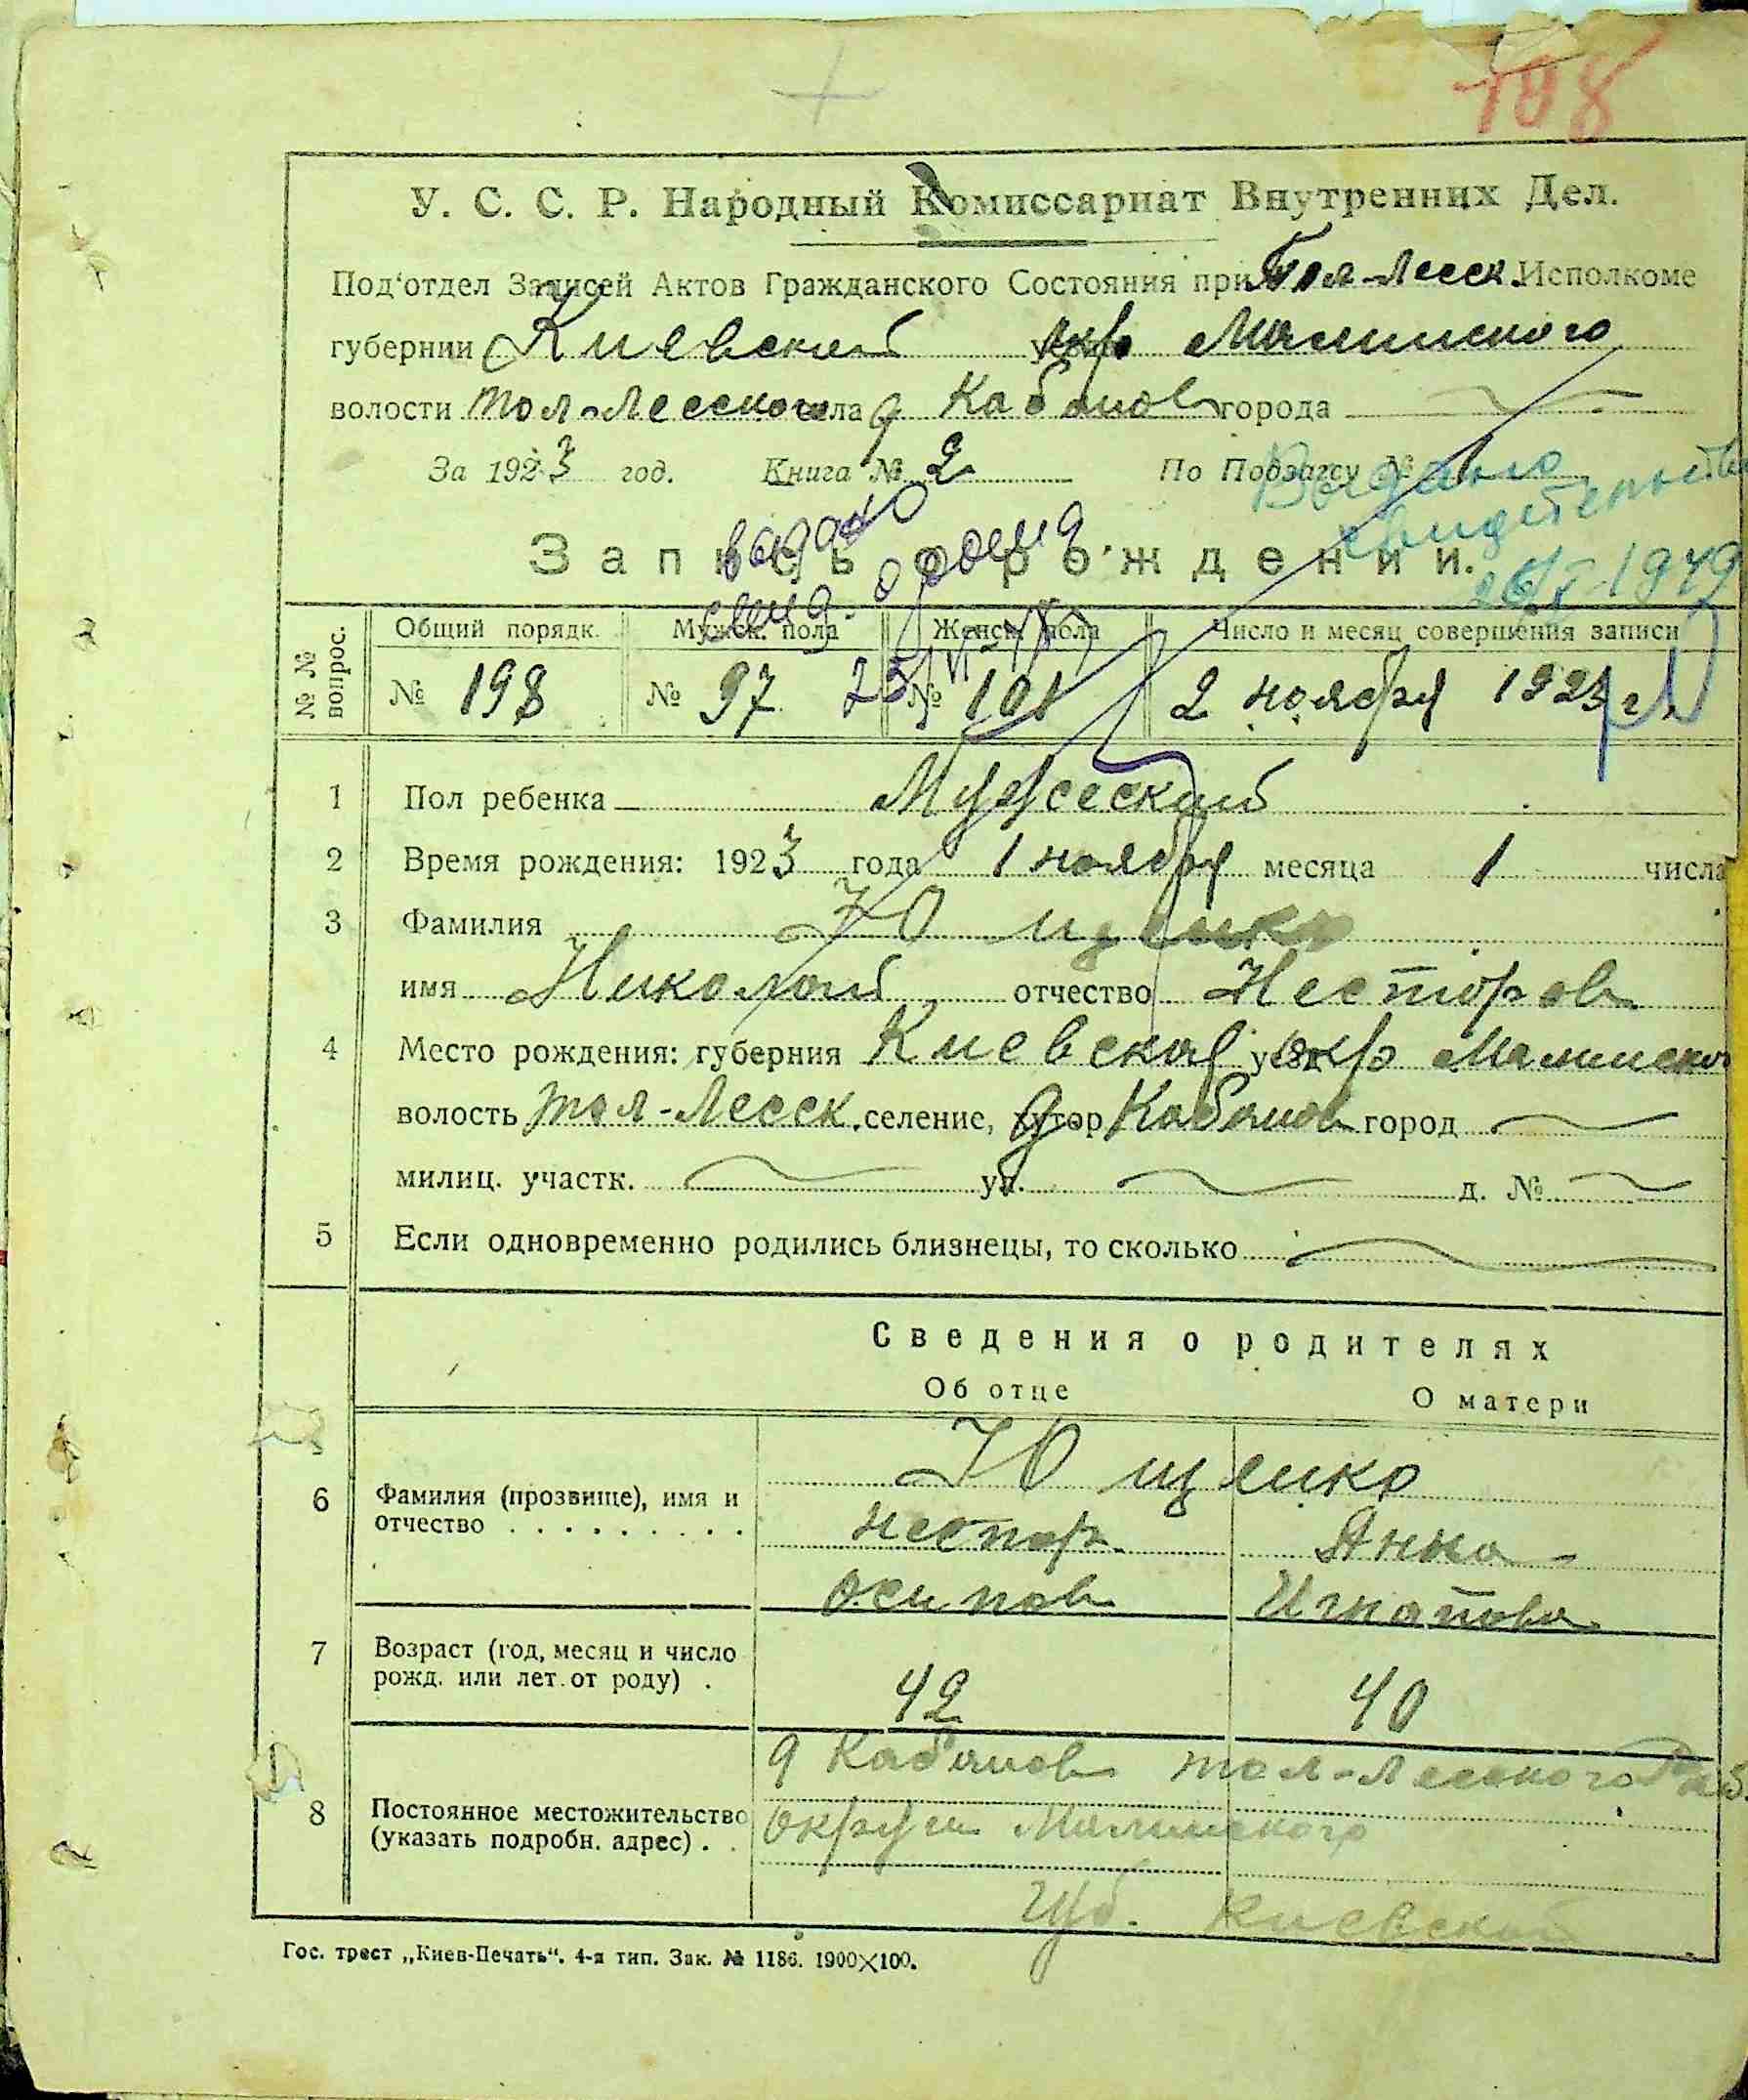 108
У. С. С. Р. Народный Комиссариат Внутренних Дел.
Под'отдел Записей Актов Гражданского Состояния при Тол-Лесск. Исполкоме
губернии Киевской окр Малинского
волости Тол-Лесского села д Кабанов города
За 1923 год. Книга № 2 По Подзагсу №
Выдано
свидетельство
26/X 1949
выдано
Запись о рождении.
№ № вопрос. Общий порядк. Мужск. пола Женск. пола Число и месяц совершения записи
№ 198 № 97 № 101 2 ноября 1923 г
1 Пол ребенка Мужеский
2 Время рождения: 1923 года 1 ноября месяца 1 числа
3 Фамилия Ющенко
имя Николай отчество Нестеров
4 Место рождения: губерния Киевская уезд окр Малинского
волость Тол-Лесск. селение, хутор д. Кабанов город
милиц. участк. ул. д. №
5 Если одновременно родились близнецы, то сколько
Сведения о родителях
Об отце О матери
6 Фамилия (прозвище), имя и отчество Ющенко
Нестор Анна
Осипов Игнатова
7 Возраст (год, месяц и число рожд. или лет от роду) . 42 40
8 Постоянное местожительство (указать подробн. адрес) . . д Кабанов Тол-Лесского Рай.
округи Малинского
Губ. Киевской
Гос. трест „Киев-Печать“. 4-я тип. Зак. № 1186. 1900×100.